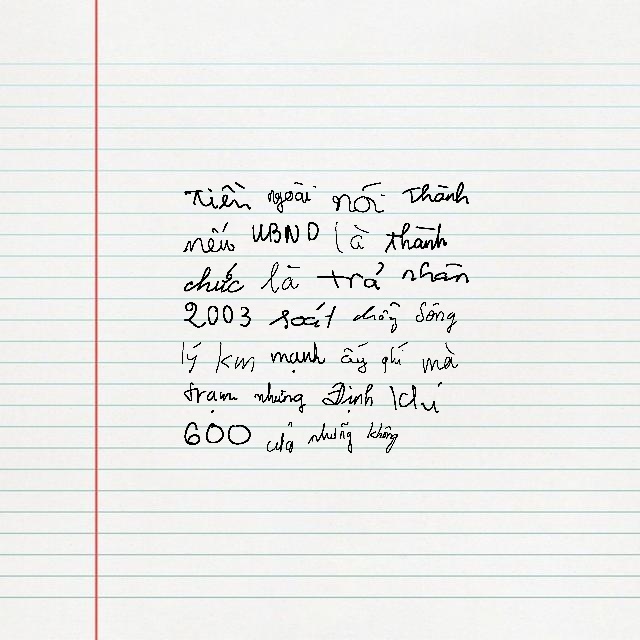 Tiền ngoài nói Thành
nếu UBND là thành
chức là trả nhân
2003 soát sông
lý km mạnh ấy ghi mà
trạm nhưng Định khi
600 những không